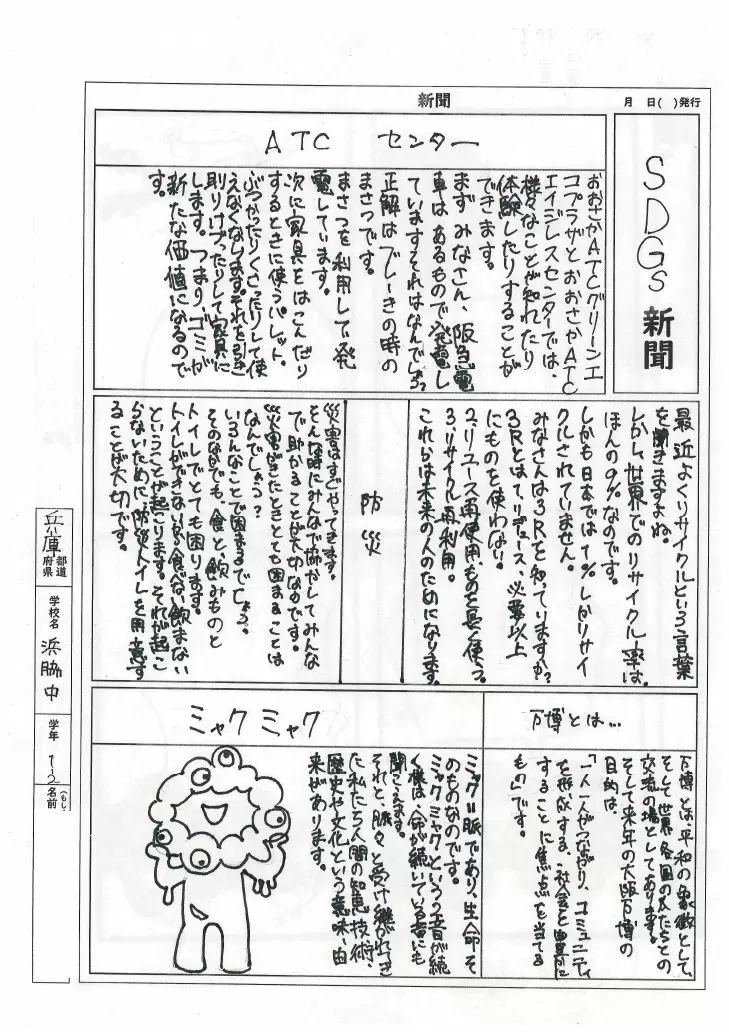 新聞
月 日( )発行
SDGs 新聞
ATC センター
おおさかATCグリーンエ
コプラザとおおさかATC
エイジレスセンターでは、
様々なことが知れたり
体験したりすることが
できます。
まずみなさん、阪急電
車はあるもので発電し
ていますそれはなんでしょう?
正解はブレーきの時の
まさつです。
まさつを利用して発
電しています。
次に家具をはこんだり
するときに使うパレット。
ぶつかったりくさったりして使
えなくなります。それを引き
取りけずったりして家具に
します。つまり、ゴミが
新たな価値になるので
す。
最近よくリサイクルという言葉
を聞きますよね。
しかし、世界でのリサイクル率は、
ほんの9%なのです。
しかも日本では1%しかリサイ
クルされていません。
みなさんは3Rを知っていますか?
3Rとは1,リデュース、必要以上
にものを使わない。
2,リユース再使用、ものを長く使う。
3,リサイクル再利用。
これらは未来の人のためになります。
防災
災害はすぐやってきます。
そんな時にみんなで協力してみんな
で助かることが大切なのです。
災害がきたときとても困まることは
なんでしょう?
いろんなことで困まるでしょう。
そのなかでも、食と飲みものと
トイレでとても困ります。
トイレができないから食べない飲まない
ということが起こります。それが起こ
らないために防災トイレを用意す
ることが大切です。
万博とは...
万博とは、平和の象徴として、
そして世界各国の人たちとの
交流の場としてあります。
そして来年の大阪万博の
目的は、
「一人一人がつながり、コミュニティ
を形成する、社会を豊かに
することに焦点を当てる
もの」です。
ミャクミャク
ミャク=脈であり、生命そ
のものなのです。
ミャクミャクという音が続
く様は、命が続いている音にも
聞こえます。
それと、脈々と受け継がれてき
た私たち人間の知恵技術、
歴史や文化という意味、由
来があります。
兵庫 都道府県
学校名 浜脇中
学年 1-2
名前